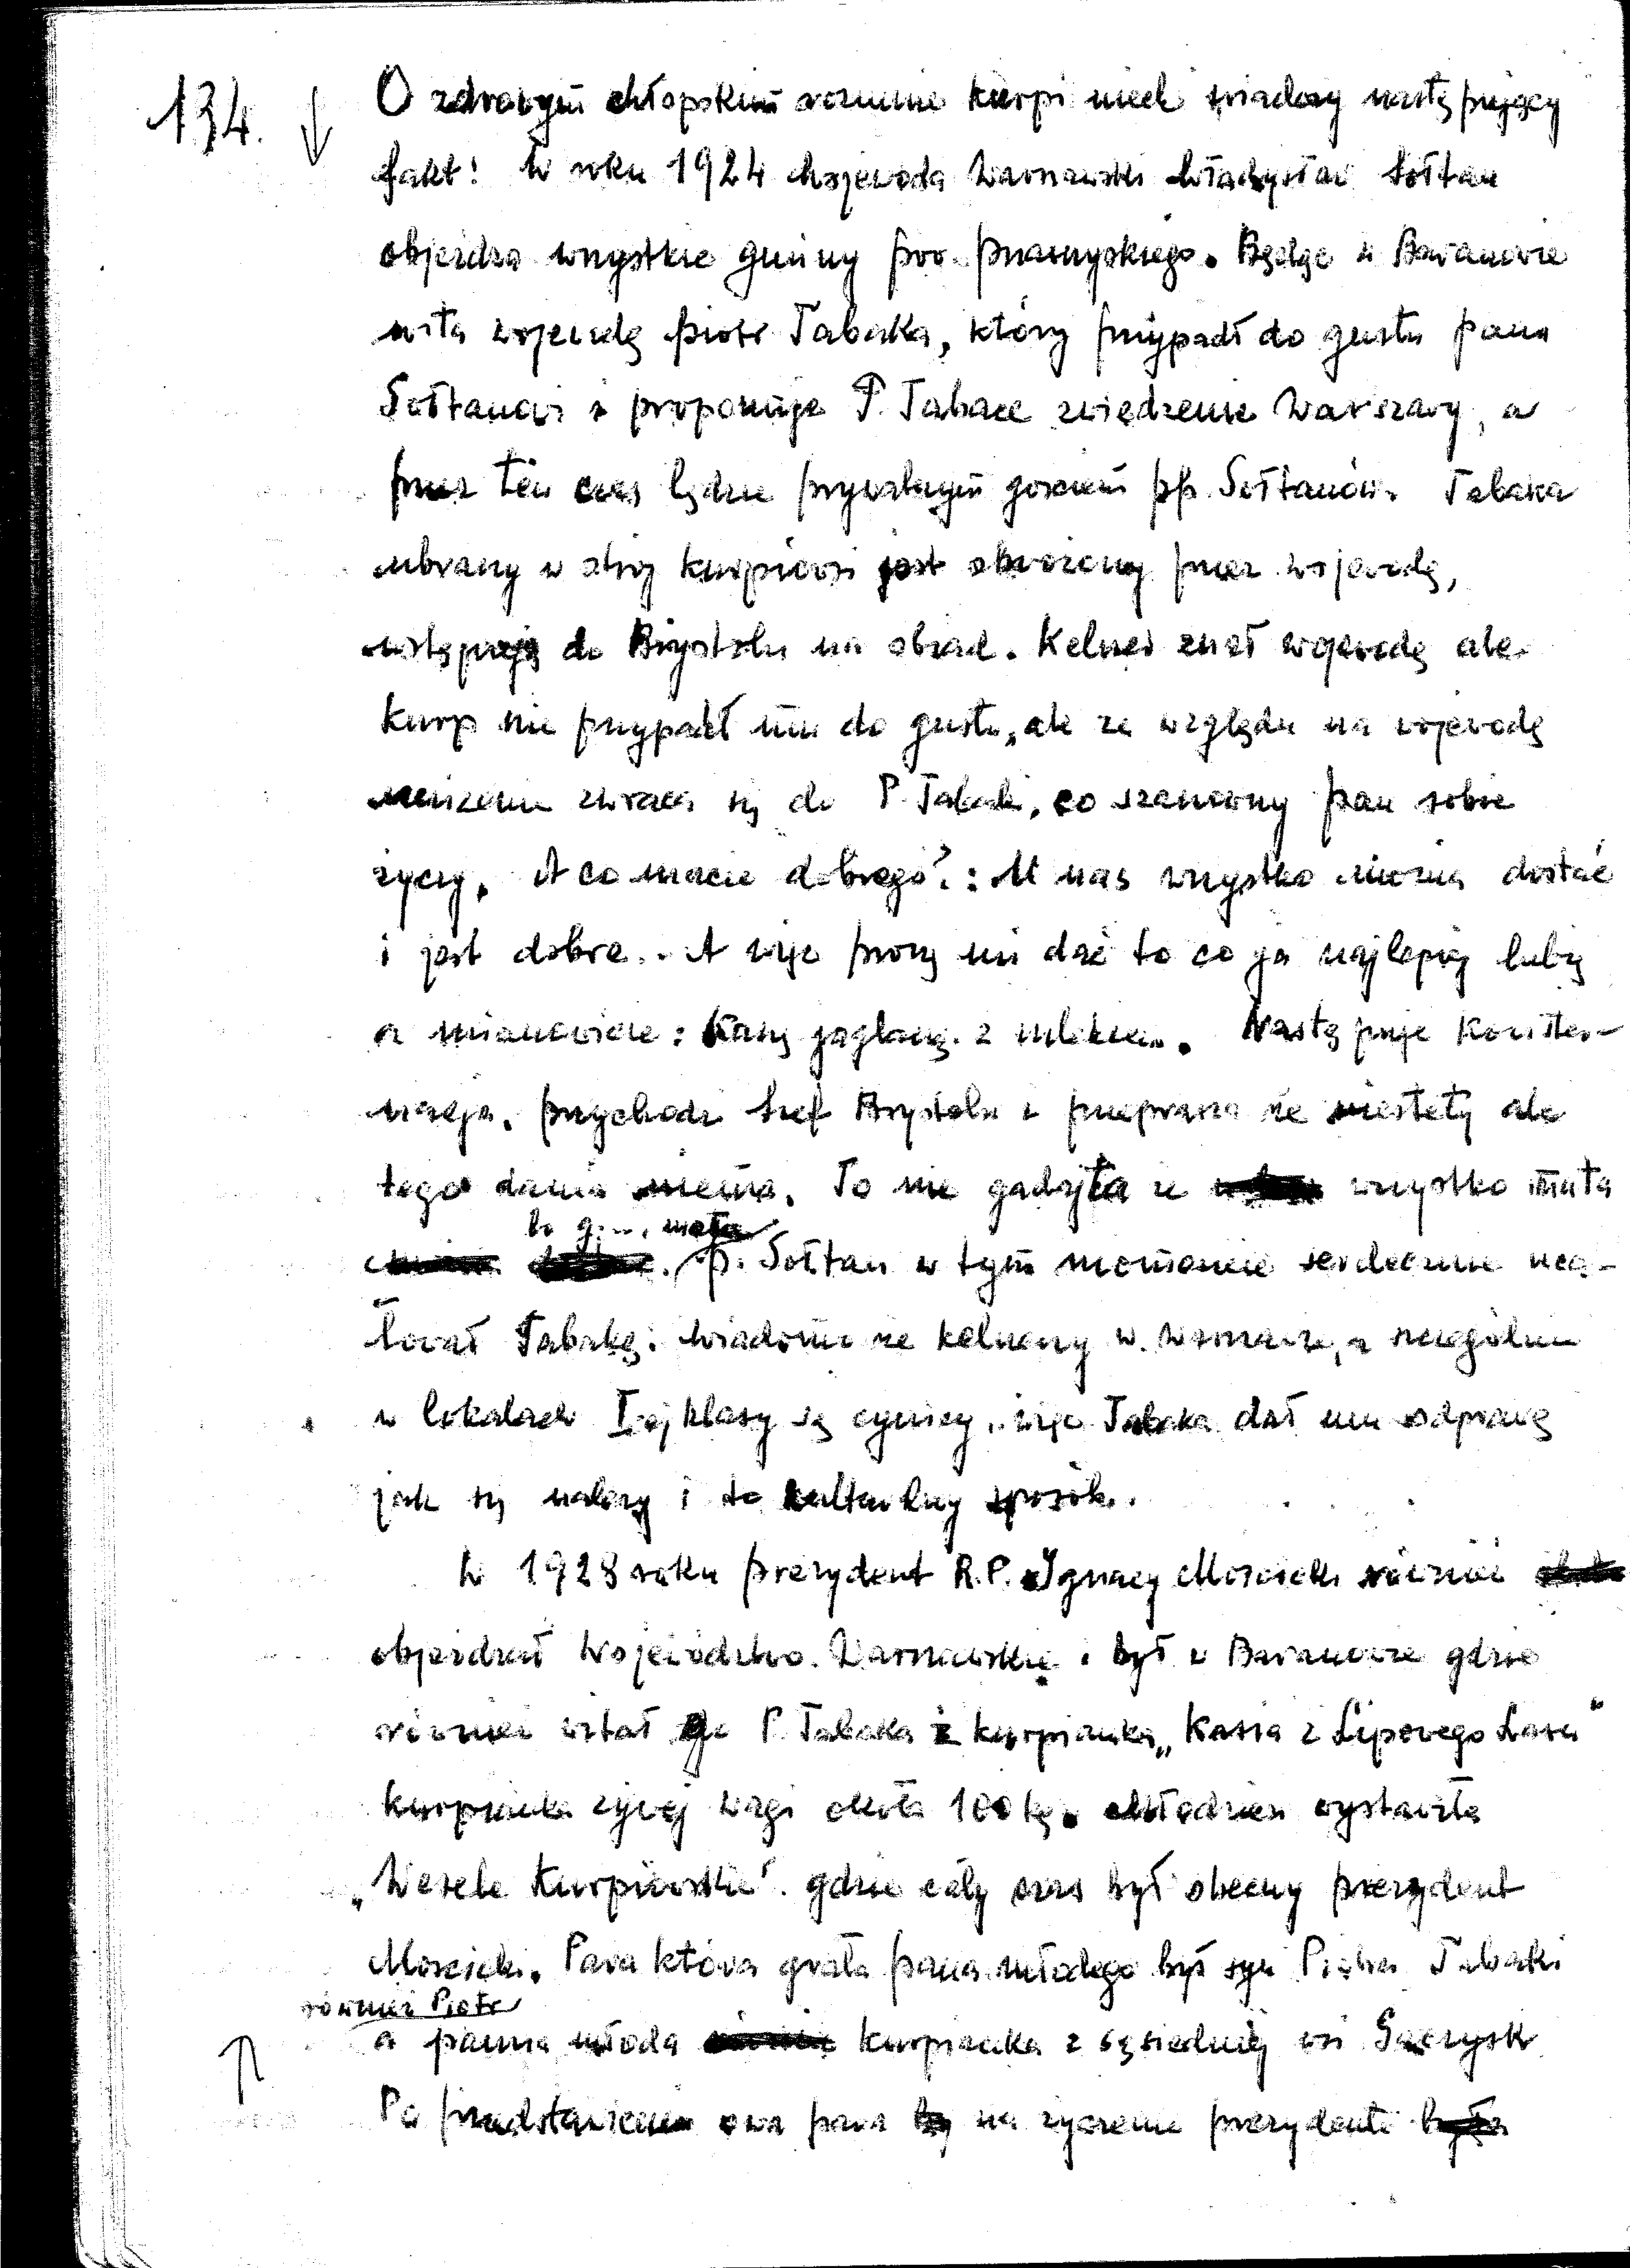 134.
O zdrowym chłopskim rozumie Kurpi niech świadczy następujący
fakt! W roku 1924 Wojewoda Warszawski Władysław Sołtan
objeżdża wszystkie gminy pow. przasnyskiego. Będąc w Baranowie
wita wojewodę Piotr Tabaka, który przypadł do gustu pana
Sołtanowi i proponuje P. Tabace zwiedzenie Warszawy, a
przez ten czas będzie prywatnym gościem pp. Sołtanów. Tabaka
ubrany w strój kurpiowsi jest obwożony przez wojewodę,
wstępują do Brystolu na obiad. Kelner znał wojewodę ale
Kurp nie przypadł mu do gustu, ale ze względu na wojewodę
zwraca się do P. Tabaki, co szanowny pan sobie
życzy. A co macie dobrego?: U nas wszystko można dostać
i jest dobre.. A więc proszę mi dać to co ja najlepiej lubię
a mianowicie: Kaszę jaglaną z mlekiem. Następuje konster-
nacja. przychodzi szef Brystolu i przeprasza że niestety ale
tego dania niema. To nie gadajta że wszystko mata
bo g..... mata
p. Sołtan w tym momencie serdecznie uca-
łował Tabakę. Wiadomo że kelnerzy w Warszawie, a szczególnie
w lokalach I-ej klasy są cynicy, więc Tabaka dał mu odprawę
jak się należy i to kulturalny sposób.
W 1928 roku prezydent R.P. Ignacy Mościcki również
objeżdżał Województwo Warszawskie i był w Baranowie gdzie
również witał go P. Tabaka i kurpianka „Kasia z Lipowego Lasu"
kurpianka żywej wagi około 100 kg. Młodzież wystawiła
„Wesele Kurpiowskie". gdzie cały czas był obecny prezydent
Mościcki. Para która grała pana młodego był syn Piotra Tabaki
również Piotr
a panna młoda kurpianka z sąsiedniej wsi Gaczysk
Po przedstawieniu owa para na życzenie prezydenta